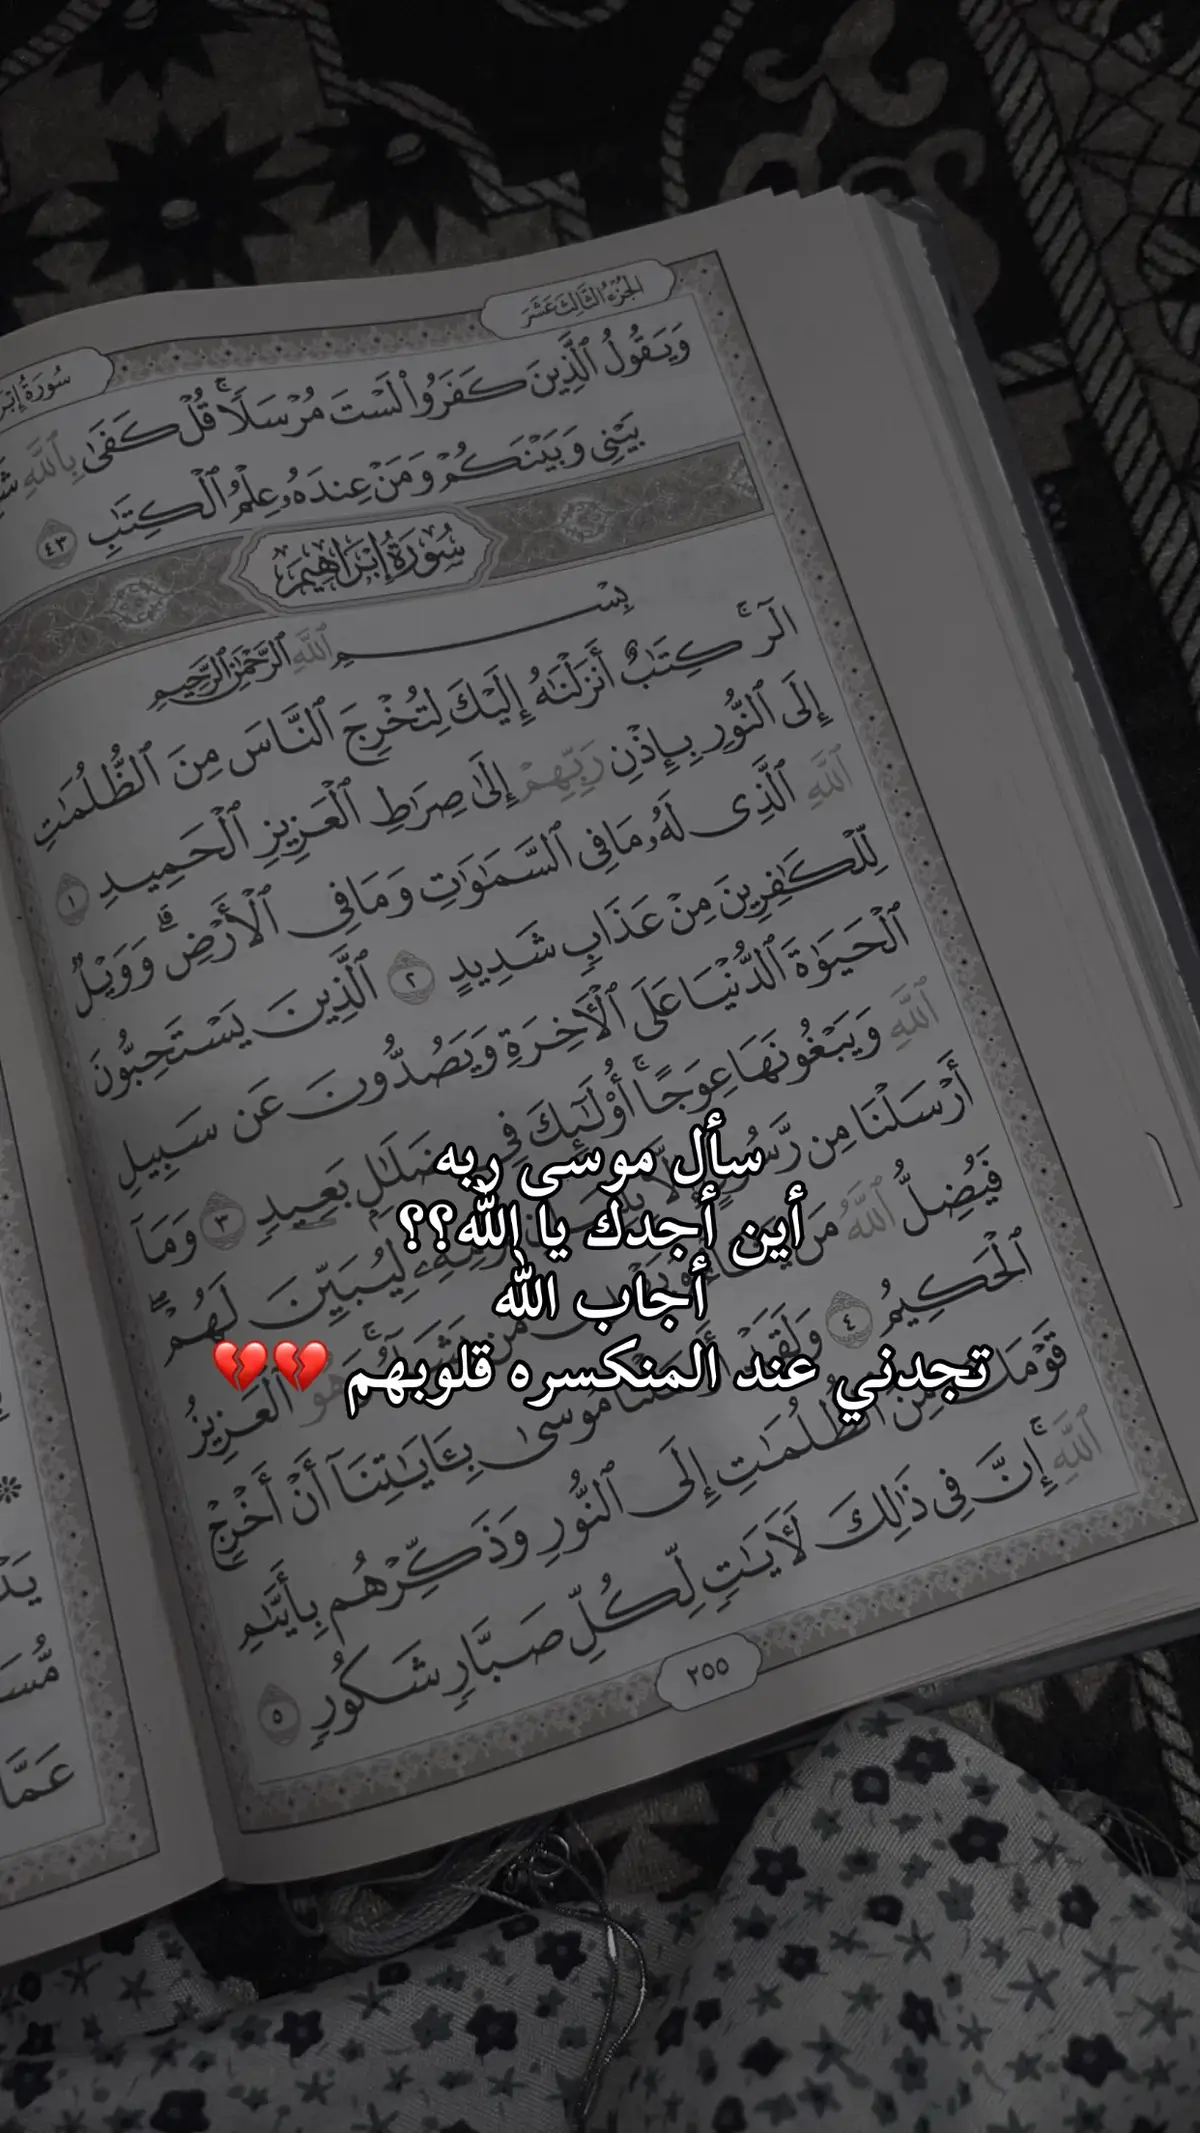 الجزء الثالث عشر
سُورَةُ إِبْرَ
وَيَقُولُ ٱلَّذِينَ كَفَرُوا۟ لَسْتَ مُرْسَلًا ۚ قُلْ كَفَىٰ بِٱللَّهِ
بَيْنِى وَبَيْنَكُمْ وَمَنْ عِندَهُۥ عِلْمُ ٱلْكِتَٰبِ ٤٣
سُورَةُ إِبْرَاهِيمَ
بِسْمِ ٱللَّهِ ٱلرَّحْمَٰنِ ٱلرَّحِيمِ
الٓر ۚ كِتَٰبٌ أَنزَلْنَٰهُ إِلَيْكَ لِتُخْرِجَ ٱلنَّاسَ مِنَ ٱلظُّلُمَٰتِ
إِلَى ٱلنُّورِ بِإِذْنِ رَبِّهِمْ إِلَىٰ صِرَٰطِ ٱلْعَزِيزِ ٱلْحَمِيدِ ١
ٱللَّهِ ٱلَّذِى لَهُۥ مَا فِى ٱلسَّمَٰوَٰتِ وَمَا فِى ٱلْأَرْضِ ۗ وَوَيْلٌ
لِّلْكَٰفِرِينَ مِنْ عَذَابٍ شَدِيدٍ ٢ ٱلَّذِينَ يَسْتَحِبُّونَ
ٱلْحَيَوٰةَ ٱلدُّنْيَا عَلَى ٱلْءَاخِرَةِ وَيَصُدُّونَ عَن سَبِيلِ
ٱللَّهِ وَيَبْغُونَهَا عِوَجًا ۚ أُو۟لَٰٓئِكَ فِى ضَلَٰلٍۭ بَعِيدٍ ٣ وَمَآ
أَرْسَلْنَا مِن رَّسُولٍ إِلَّا لِيُبَيِّنَ لَهُمْ ۖ
فَيُضِلُّ ٱللَّهُ مَن وَهُوَ ٱلْعَزِيزُ
ٱلْحَكِيمُ ٤ وَلَقَدْ مُوسَىٰ بِـَٔايَٰتِنَآ أَنْ أَخْرِجْ
قَوْمَكَ مِنَ ٱلظُّلُمَٰتِ إِلَى ٱلنُّورِ وَذَكِّرْهُم بِأَيَّىٰمِ
ٱللَّهِ ۚ إِنَّ فِى ذَٰلِكَ لَءَايَٰتٍ لِّكُلِّ صَبَّارٍ شَكُورٍ ٥
٢٥٥
سأل موسى ربه
أين أجدك يا الله؟؟
أجاب الله
تجدني عند المنكسره قلوبهم 💔💔